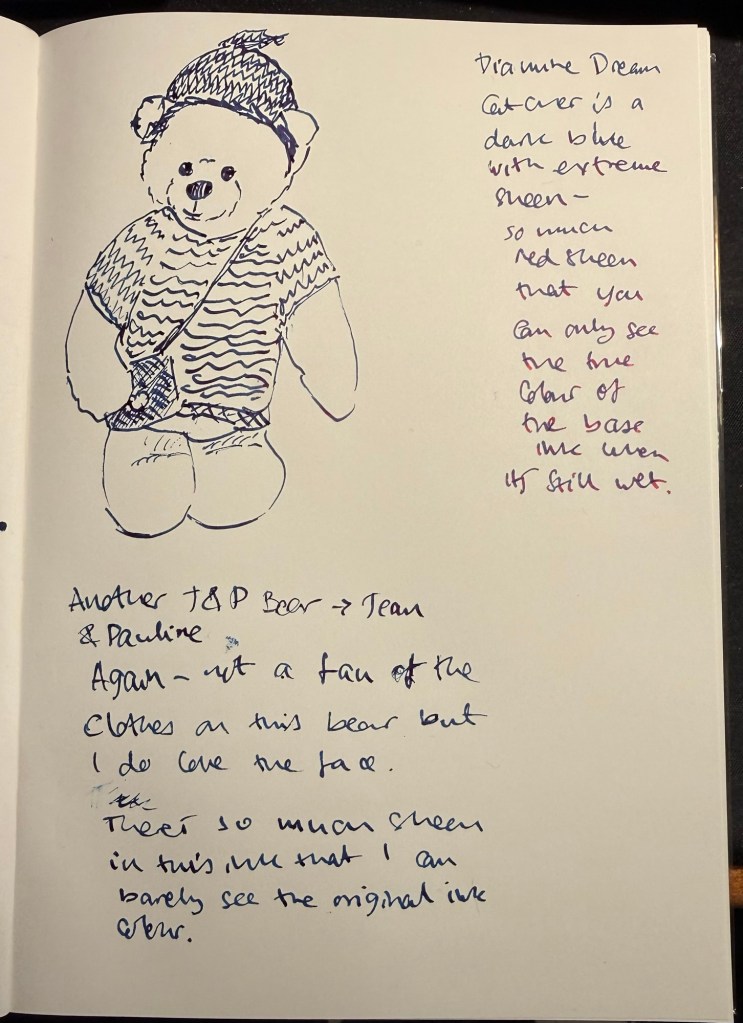 Diamine Dream
Catcher is a
dark blue
with extreme
sheen -
so much
red sheen
that you
can only see
the true
colour of
the base
ink when
it's still wet.
Another J&P Bear → Jean
& Pauline
Again - not a fan of the
clothes on this bear but
I do love the face.
There's so much sheen
in this ink that I can
barely see the original ink
colour.